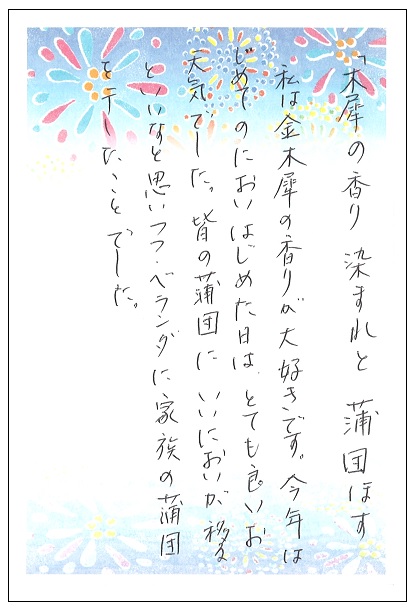 「木犀の香り 染まれと 蒲団ほす
私は金木犀の香りが大好きです。今年は
じめてのにおいはじめた日は、とても良いお
天気でした。皆の蒲団に いいにおいが移る
といいなと思いつつ・ベランダに家族の蒲団
を干したことでした。